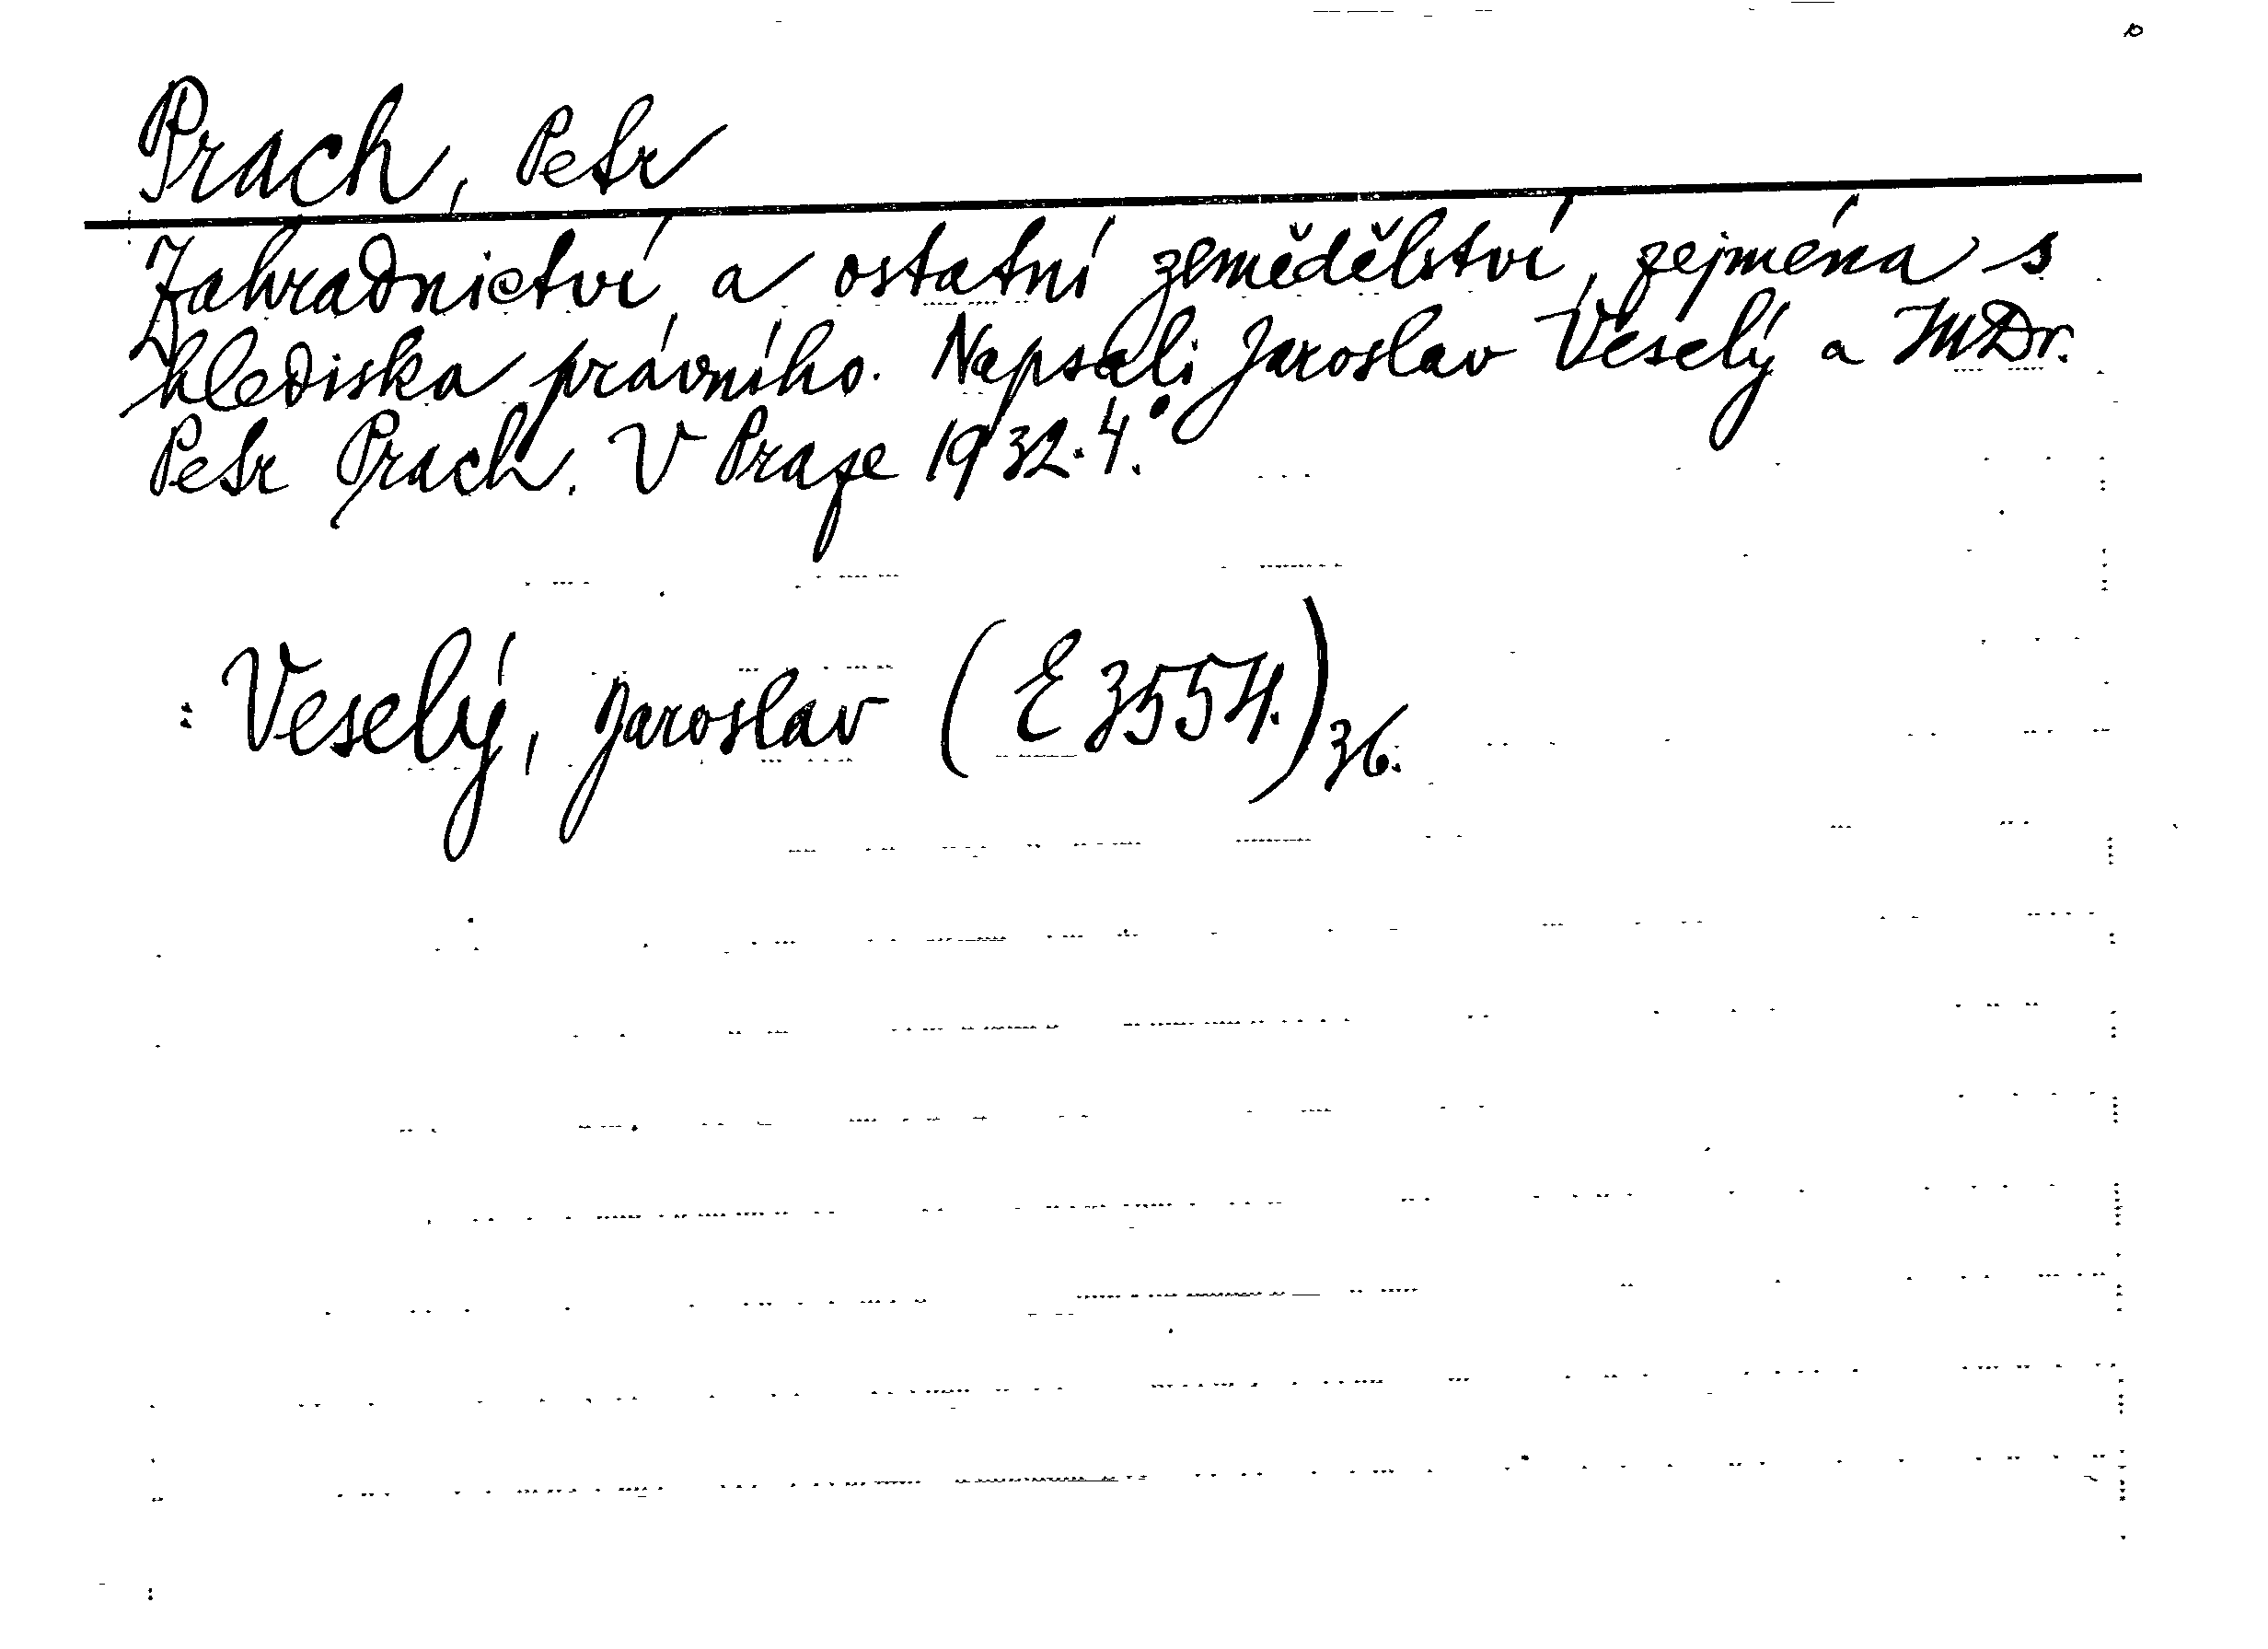 Prach, Petr
Zahradnictví a ostatní zemědělství, zejména s
hlediska právního. Napsali Jaroslav Veselý a JUDr.
Petr Prach. V Praze 1932. 4.°
: Veselý, Jaroslav (E 3554.) 36.